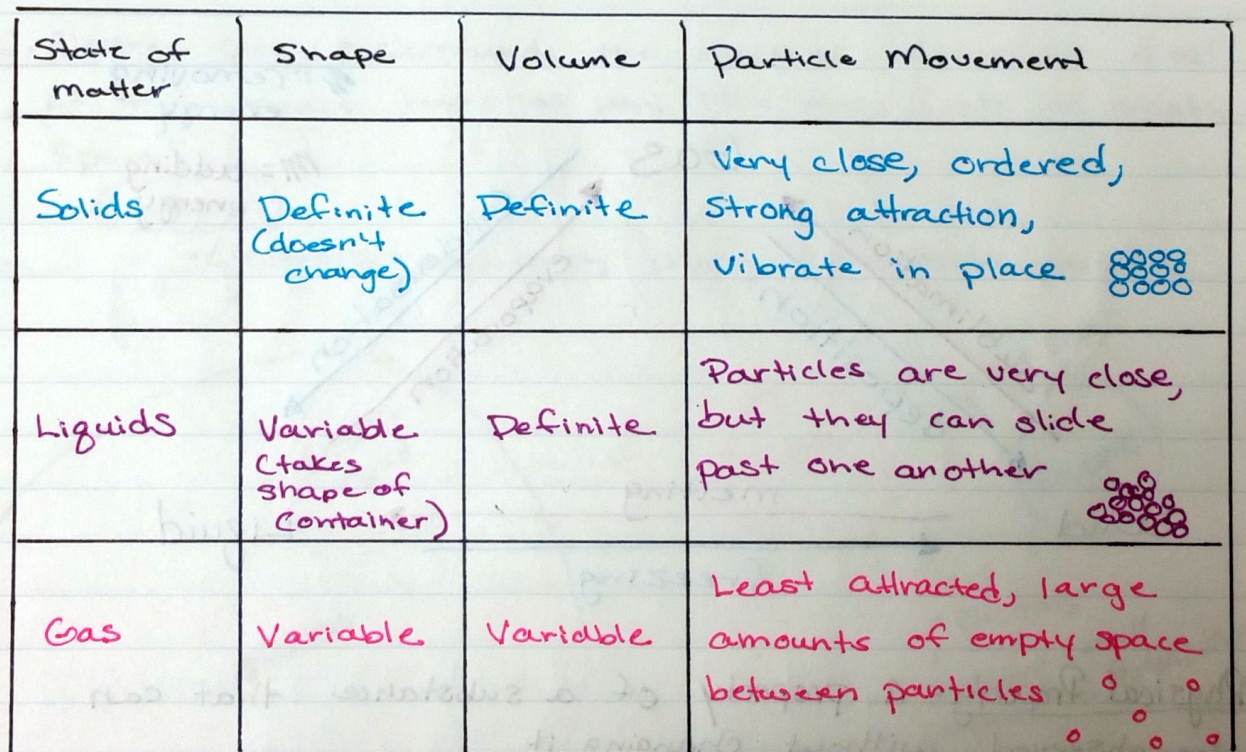 State of matter
Shape
Volume
Particle Movement
Solids
Definite
(doesn't
change)
Definite
Very close, ordered,
Strong attraction,
vibrate in place
Liquids
Variable
(takes
shape of
container)
Definite
Particles are very close,
but they can slide
past one another
Gas
Variable
Variable
Least attracted, large
amounts of empty space
between particles